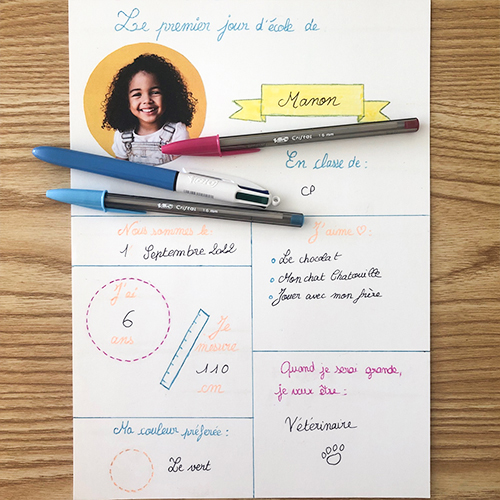 Le premier jour d'école de
Manon
BIC Cristal 1.6 mm
En classe de :
CP
BIC Cristal 1.6 mm
Nous sommes le :
1 Septembre 2022
J'aime ♡ :
Le chocolat
Mon chat Chatouille
Jouer avec mon frère
J'ai
6
ans
Je
mesure
110
cm
Quand je serai grande,
je veux être :
Vétérinaire
Ma couleur préférée :
Le vert